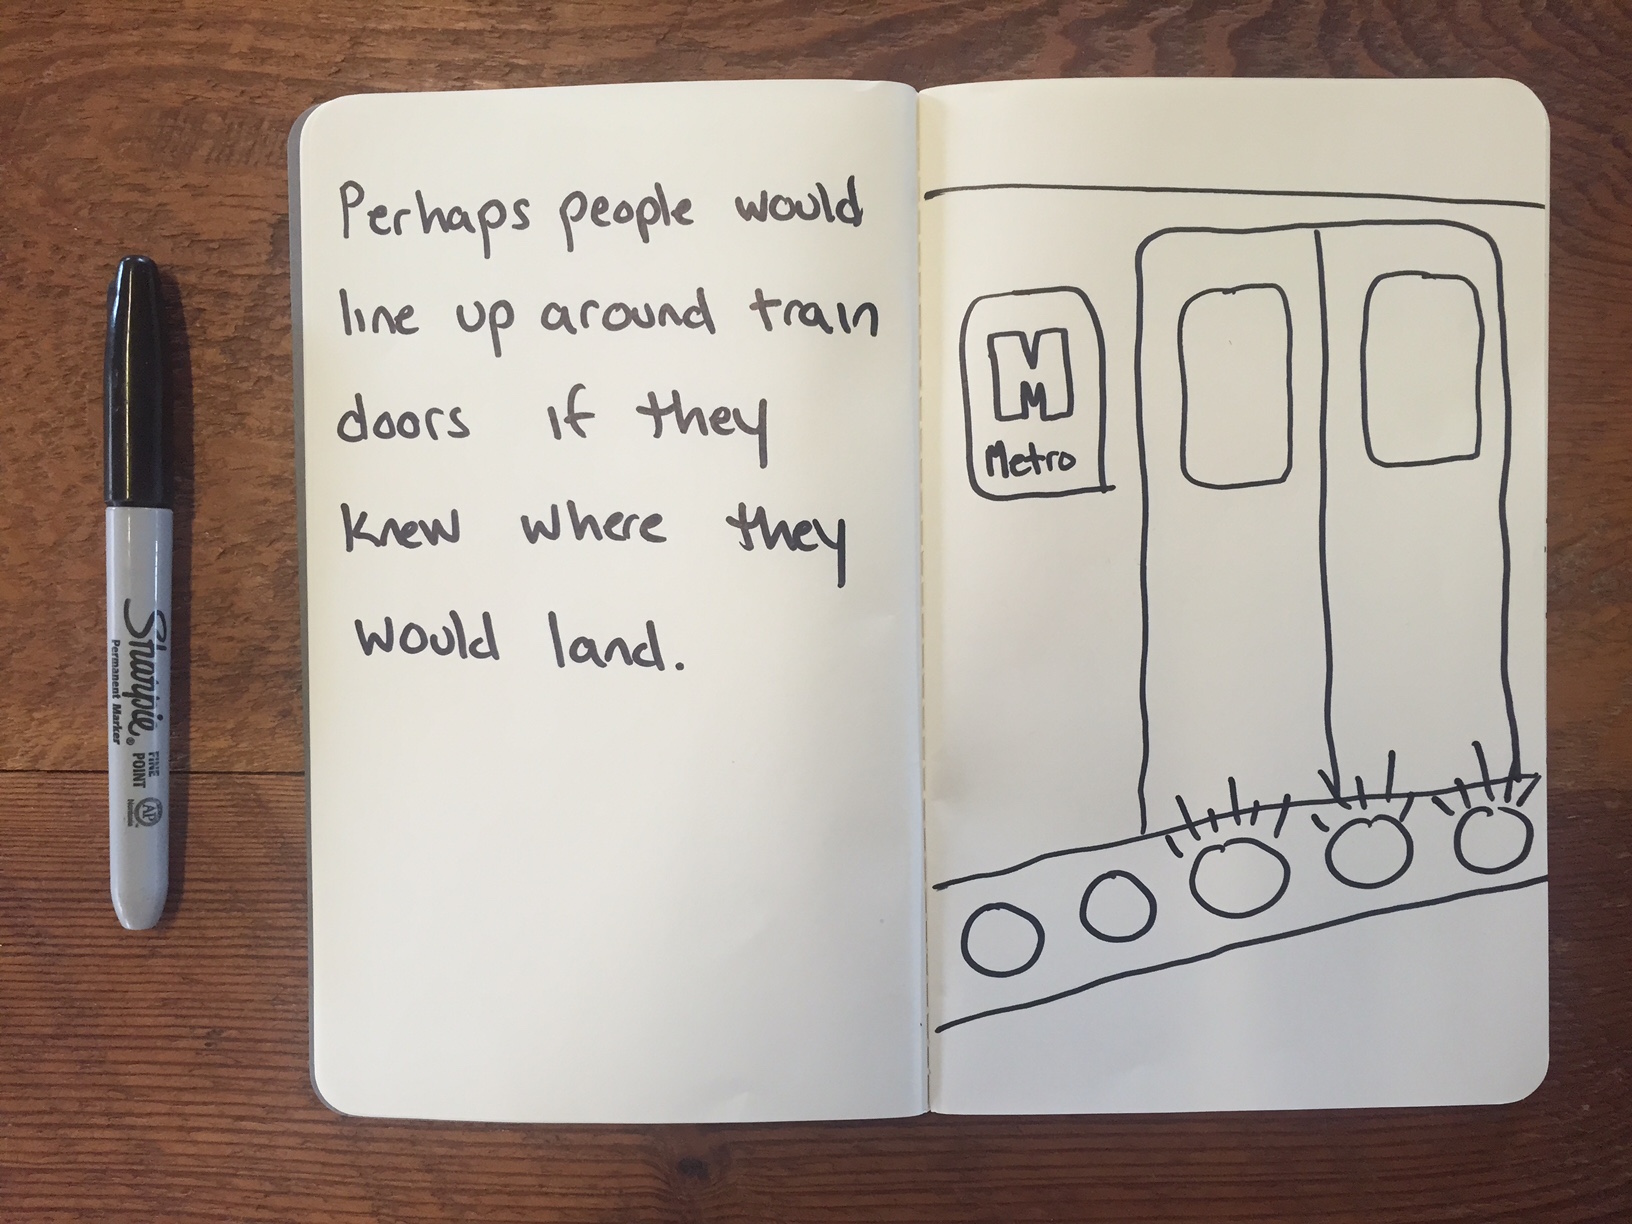 Perhaps people would
line up around train
doors if they
knew where they
would land.
M
M
Metro
Sharpie®
Permanent Marker
FINE
POINT
AP